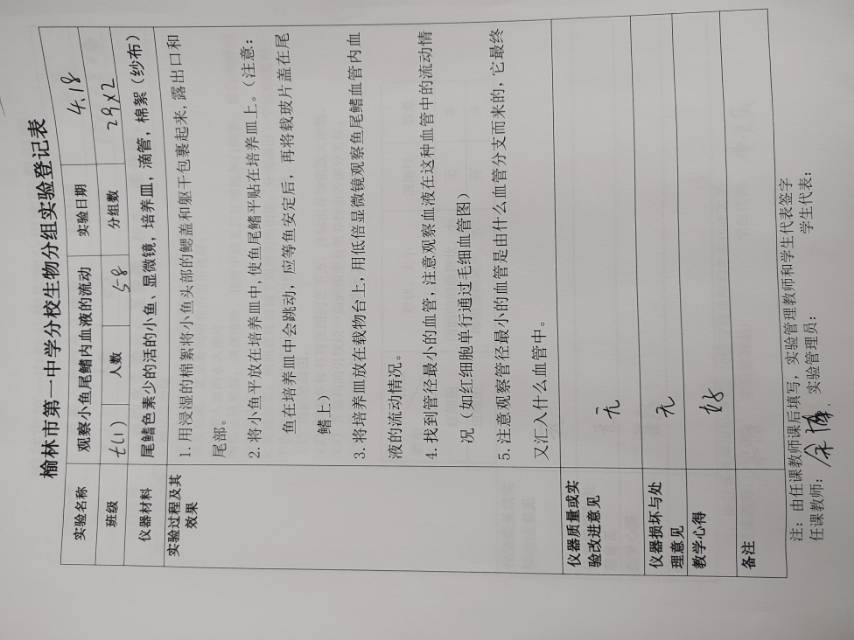 榆林市第一中学分校生物分组实验登记表
实验名称 观察小鱼尾鳍内血液的流动 实验日期 4.18
班级 七(1) 人数 58 分组数 29×2
仪器材料 尾鳍色素少的活的小鱼、显微镜，培养皿，滴管，棉絮（纱布）
实验过程及其
效果
1.用浸湿的棉絮将小鱼头部的鳃盖和躯干包裹起来，露出口和
尾部。
2.将小鱼平放在培养皿中，使鱼尾鳍平贴在培养皿上。（注意：
鱼在培养皿中会跳动，应等鱼安定后，再将载玻片盖在尾
鳍上）
3.将培养皿放在载物台上，用低倍显微镜观察鱼尾鳍血管内血
液的流动情况。
4.找到管径最小的血管，注意观察血液在这种血管中的流动情
况（如红细胞单行通过毛细血管图）
5.注意观察管径最小的血管是由什么血管分支而来的，它最终
又汇入什么血管中。
仪器质量或实
验改进意见
无
仪器损坏与处
理意见
无
教学心得 好
备注
注：由任课教师课后填写，实验管理教师和学生代表签字
任课教师： 实验管理员： 学生代表：